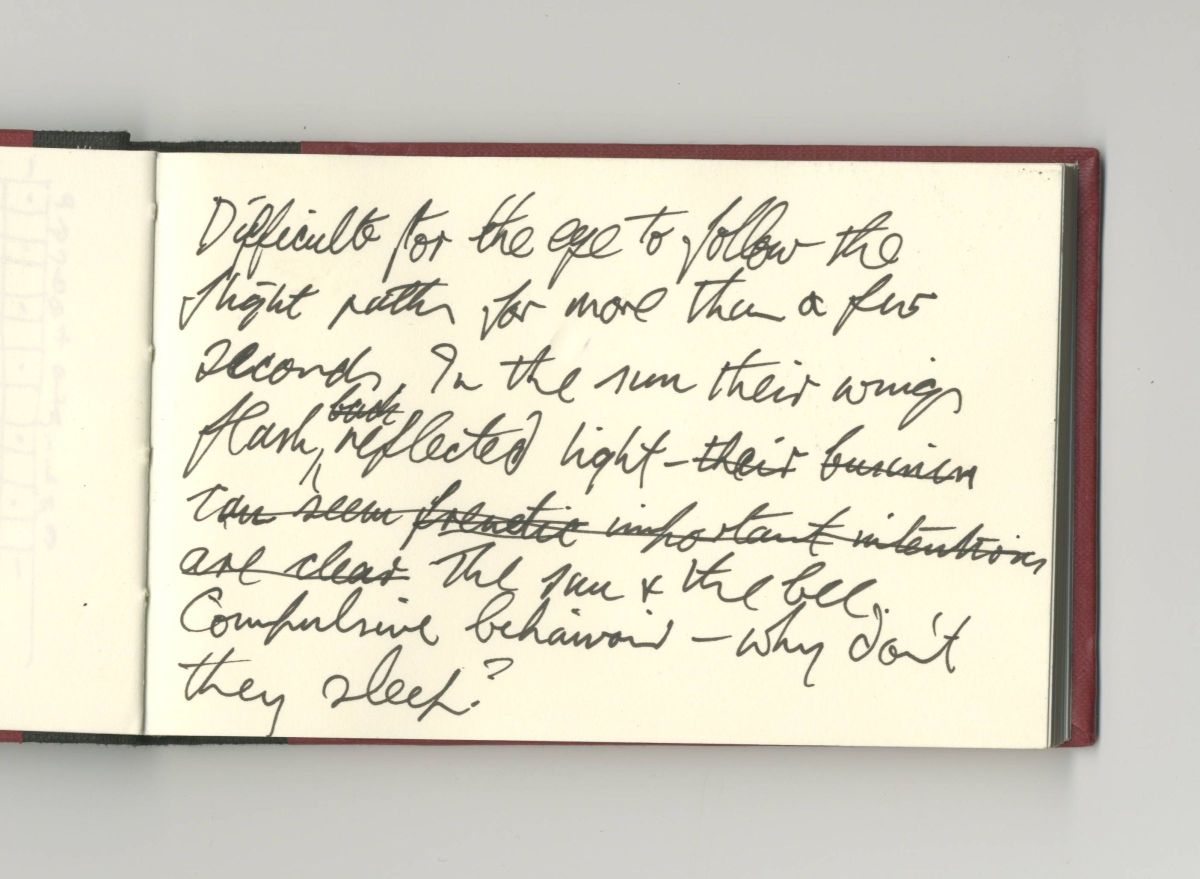 Difficult for the eye to follow the
flight paths for more than a few
seconds. In the sun their wings
back
flash, reflected light – their business
can seem frenetic important intentions
are clear The sun & the bee.
Compulsive behaiviour – why don't
they sleep?